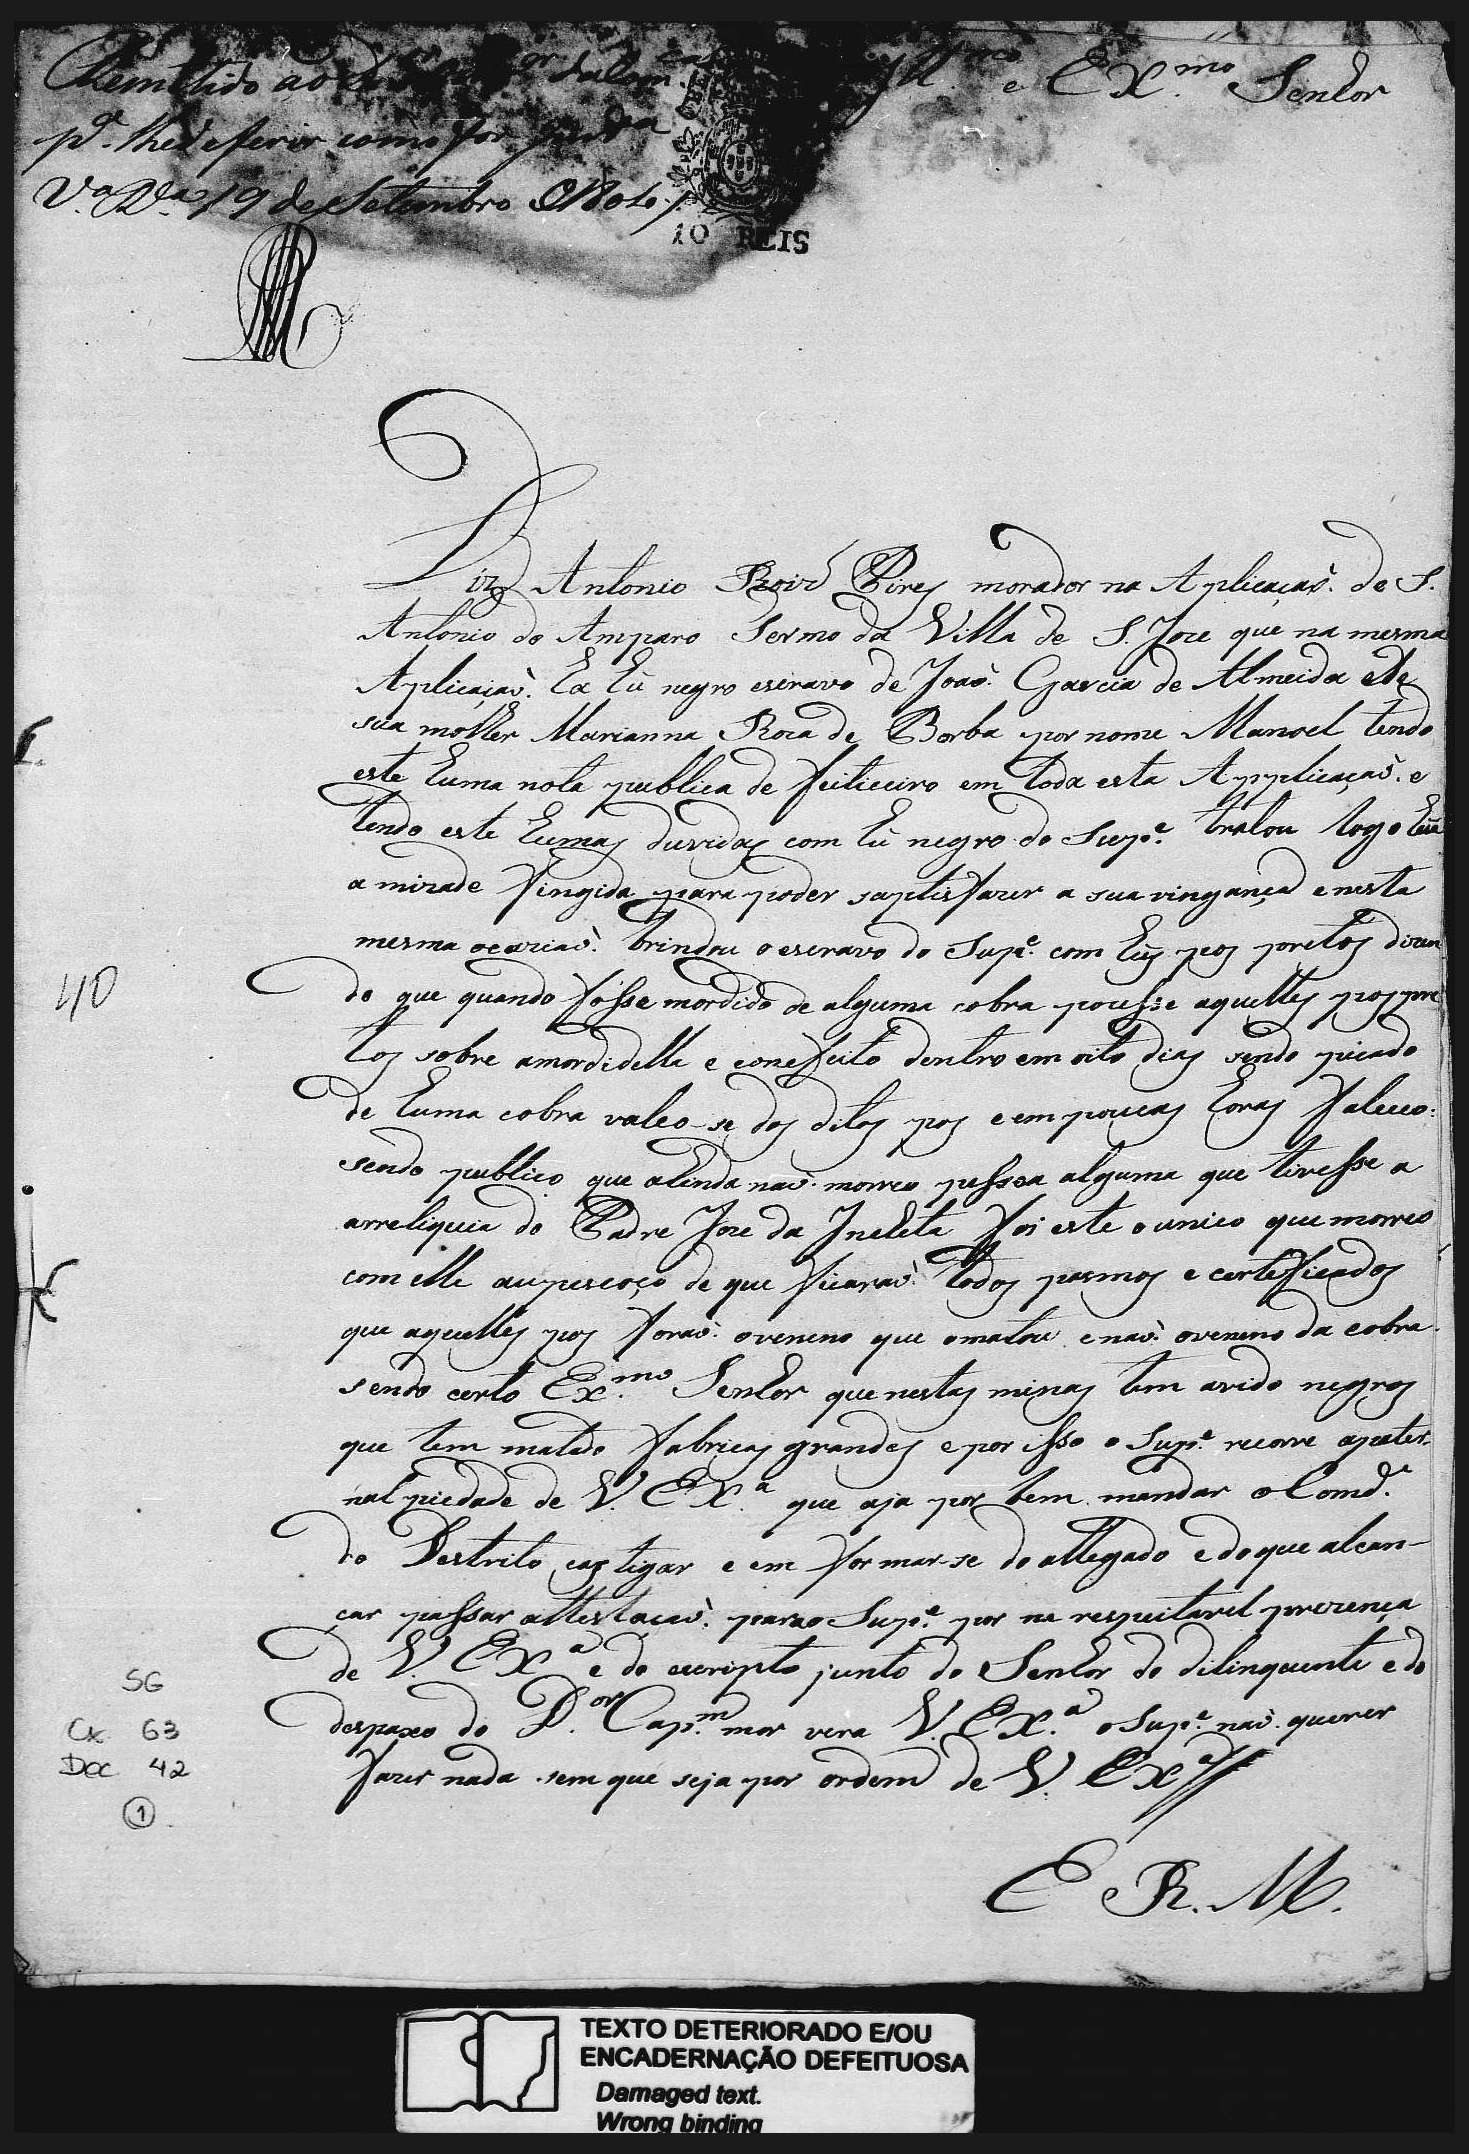 Remettido ao
pª. lhe deferir como for Justª
Vª Rª 19 de Setembro 1804
Illmo e Exmo Senhor
10 REIS
Diz Antonio Roiz Pires morador na Aplicaçaõ. de S.
Antonio do Amparo Termo da Villa de S. Joze que na mesma
Aplicaçaõ. ha hũ negro escravo de Joaõ. Garcia de Almeida e de
sua molher Marianna Roza de Borba por nome Manoel tendo
este huma nota publica de feiticeiro em toda esta Applicaçaõ. e
tendo este humas duvidas com hũ negro do Supe. tratou logo hũa
amizade fingida para poder saptisfazer a sua vingança e nesta
mesma ocaziaõ. brindou o escravo do Supe. com hũs pos pretos dizen
do que quando fosse mordido de alguma cobra pozesse aquelles pos pre
tos sobre amordidella e conefeito dentro em oito dias sendo picado
de huma cobra valeo-se dos ditos pos e em poucas horas faleceo:
sendo publico que ahinda naõ. morreo pessoa alguma que tivesse a
arreliquia do Padre Joze da Incleta foi este o unico que morreo
com elle aupescoço de que ficaraõ. todos pasmos e certeficados
que aquelles pos foraõ. oveneno que omatou enaõ. oveneno da cobra.
sendo certo Exmo Senhor que nestas minas tem avido negros
que tem matado fabricas grandes e por isso o Supe. recorre apater-
nal piedade de V. Exª que aja por bem mandar o Comde.
do Destrito castigar e em formar-se do allegado e do que alcan-
çar passar attestaçaõ. para o Supe. por na respeitavel prezença
de V. Exª e do escripto junto do Senhor do dilinquente e do
despaxo do Dor Capm mor vera V. Exª o Supe. naõ. querer
fazer nada sem que seja por ordem de V. Exª
E R. M.
40
SG
Cx 63
Doc 42
1
TEXTO DETERIORADO E/OU
ENCADERNAÇÃO DEFEITUOSA
Damaged text.
Wrong binding